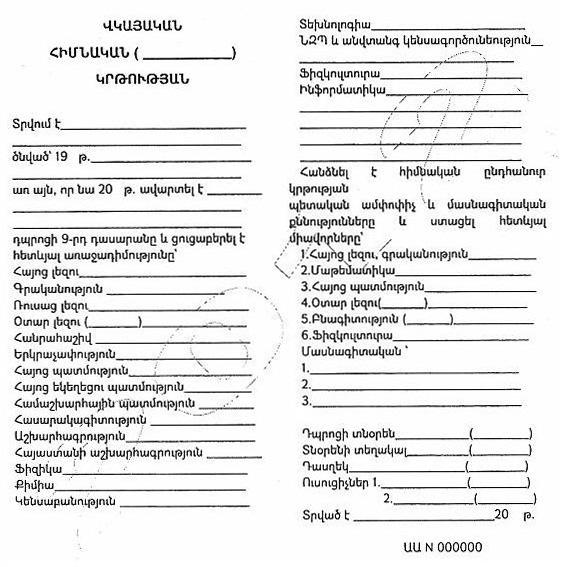 ՎԿԱՅԱԿԱՆ
ՀԻՄՆԱԿԱՆ (____________)
ԿՐԹՈՒԹՅԱՆ
Տրվում է__________________________
__________________________________
ծնված՝ 19   թ.______________________
__________________________________
առ այն, որ նա 20   թ. ավարտել է ________
__________________________________
__________________________________
դպրոցի 9-րդ դասարանը և ցուցաբերել է
հետևյալ առաջադիմությունը՝
Հայոց լեզու________________________
Գրականություն ____________________
Ռուսաց լեզու______________________
Օտար լեզու (_______)_______________
Հանրահաշիվ______________________
Երկրաչափություն__________________
Հայոց պատմություն________________
Հայոց եկեղեցու պատմություն_________
Համաշխարհային պատմություն_______
Հասարակագիտություն______________
Աշխարհագրություն_________________
Հայաստանի աշխարհագրություն_______
Ֆիզիկա__________________________
Քիմիա____________________________
Կենսաբանություն __________________
Տեխնոլոգիա______________________
ՆԶՊ և անվտանգ կենսագործունեություն__
__________________________________
Ֆիզկուլտուրա_____________________
Ինֆորմատիկա____________________
__________________________________
__________________________________
__________________________________
__________________________________
Հանձնել է հիմնական ընդհանուր
կրթության
պետական ամփոփիչ և մասնագիտական
քննությունները և ստացել հետևյալ
միավորները՝
1.Հայոց լեզու, գրականություն_________
2.Մաթեմատիկա___________________
3.Հայոց պատմություն_______________
4.Օտար լեզու(______)______________
5.Բնագիտություն (______)___________
6.Ֆիզկուլտուրա___________________
Մասնագիտական ՝
1.____________________________
2.____________________________
3.____________________________
Դպրոցի տնօրեն__________(________)
Տնօրենի տեղակալ_________(________)
Դասղեկ_________________(________)
Ուսուցիչներ 1.____________(________)
2. __________(________)
Տրված է ____________________20   թ.
ԱԱ N 000000